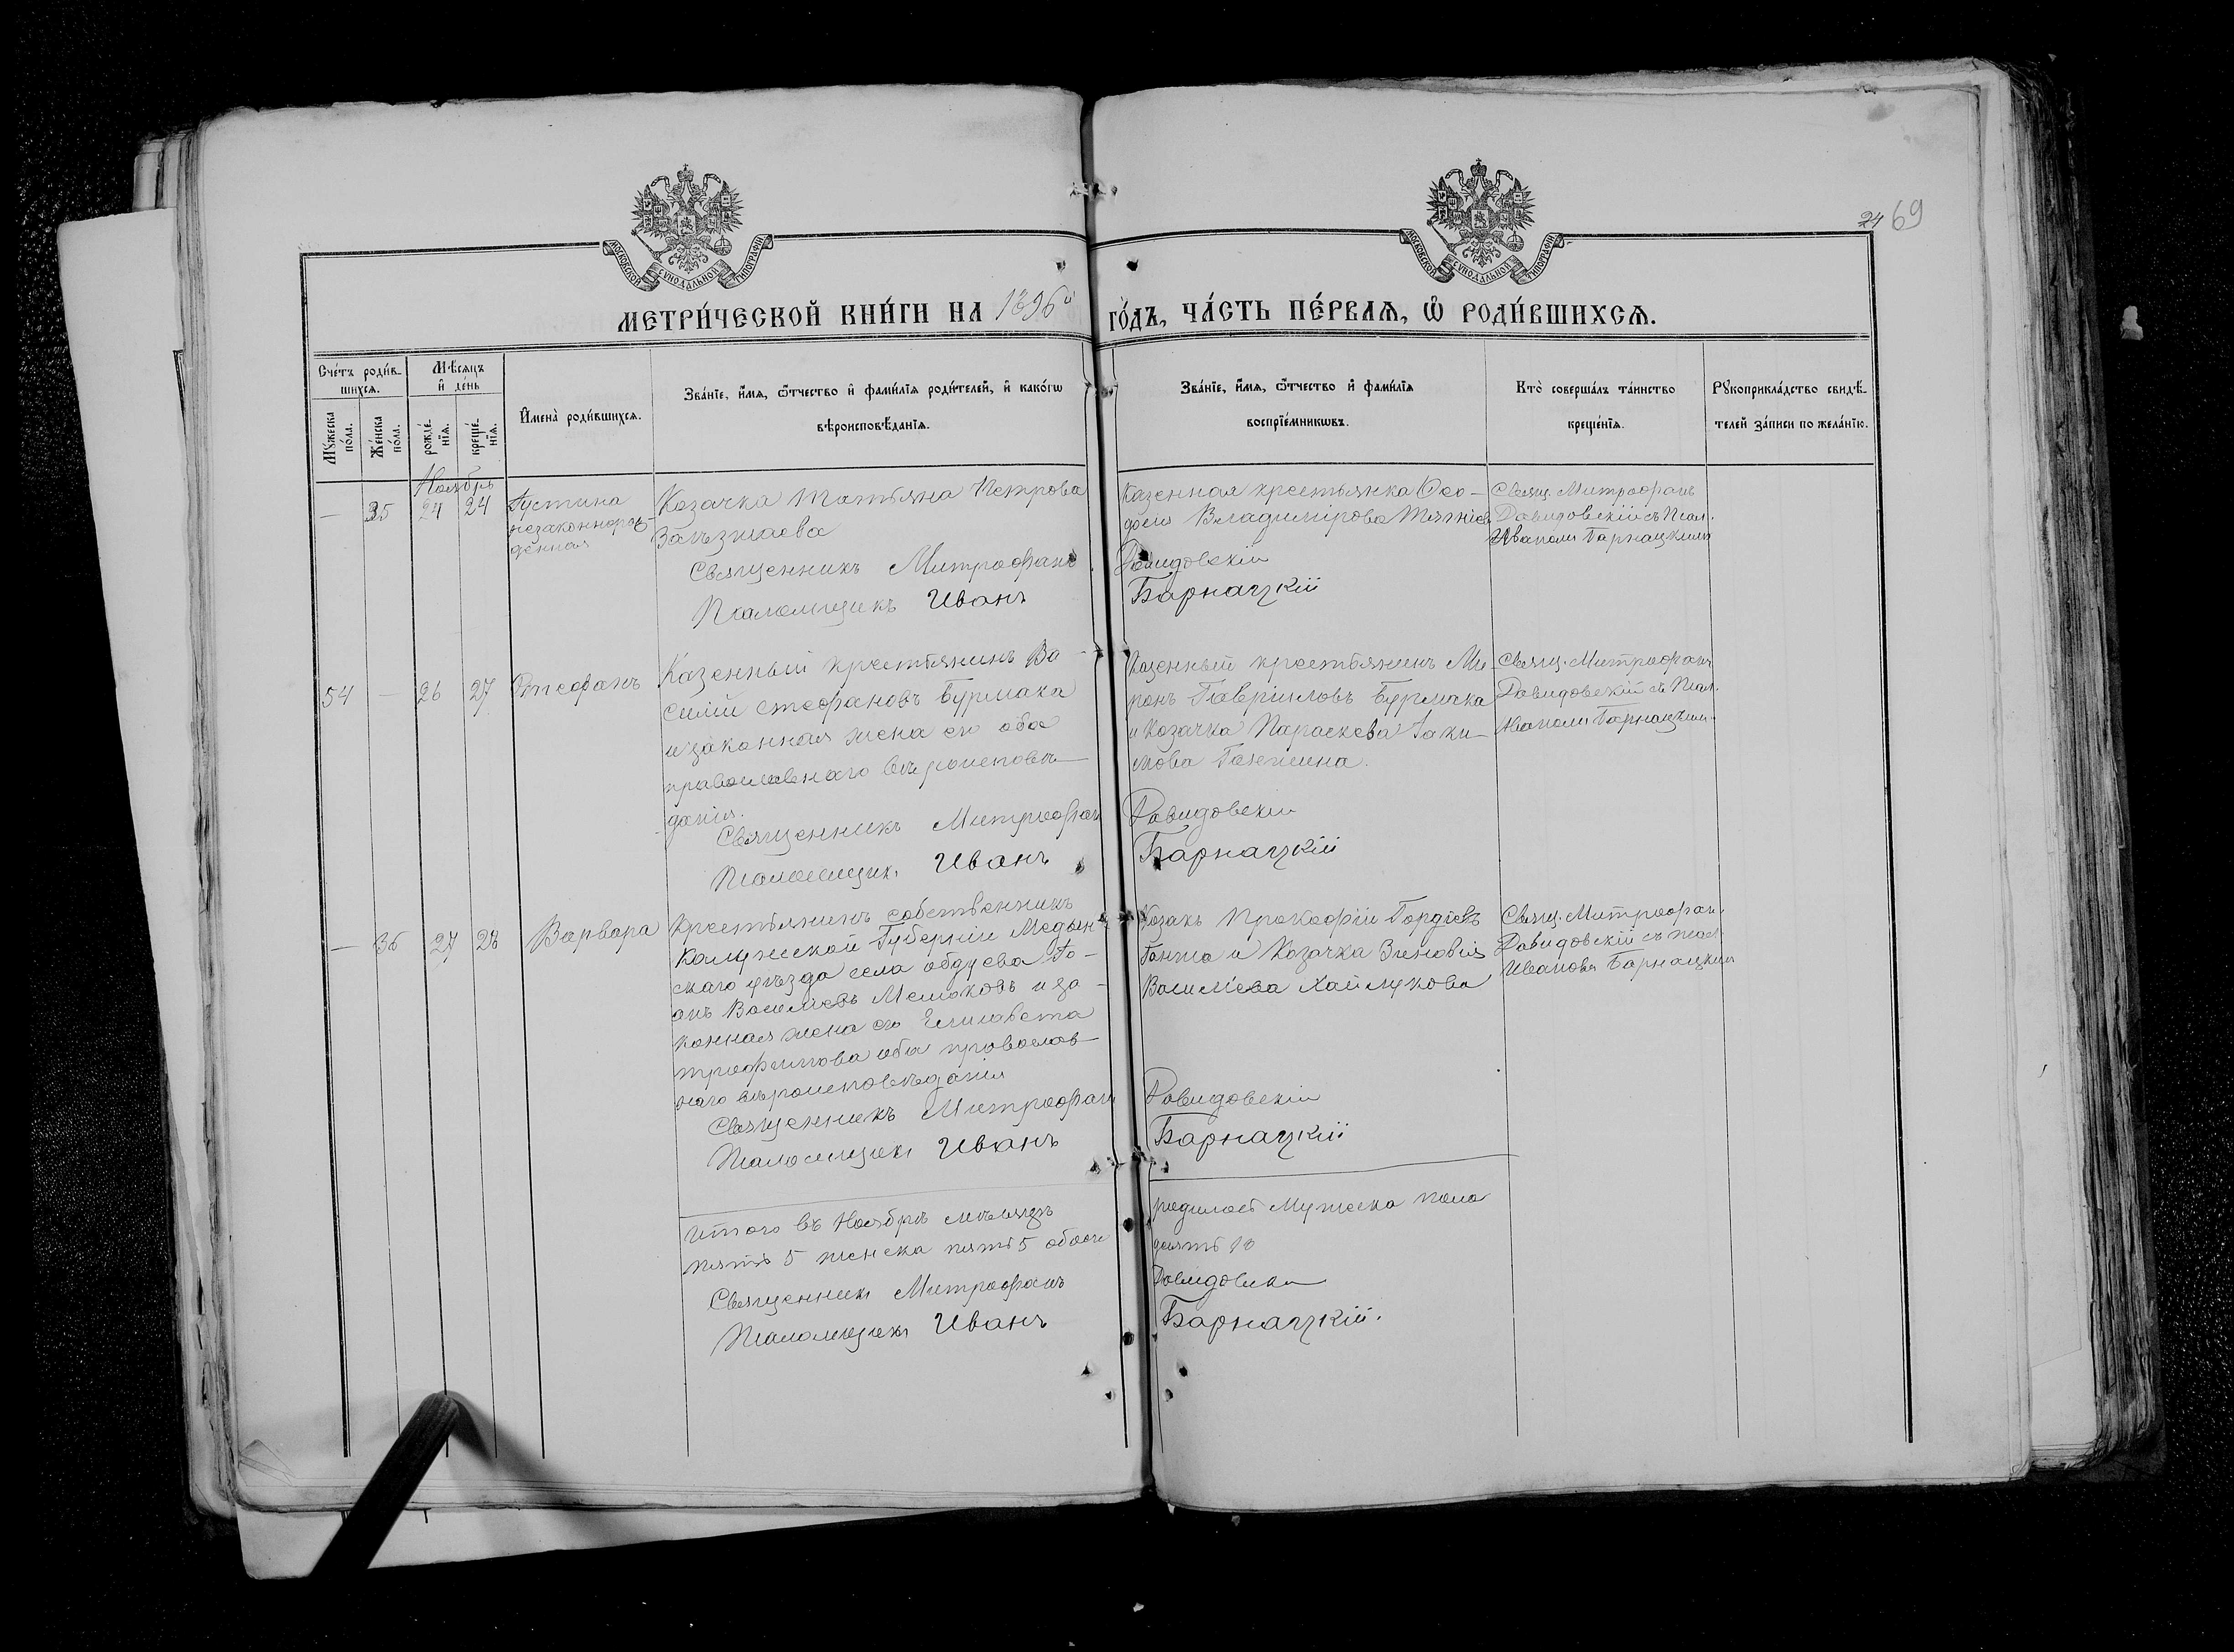 24 69
МОСКОВСКОЙ СѴНОДАЛЬНОЙ ТИПОГРАФІИ
МОСКОВСКОЙ СѴНОДАЛЬНОЙ ТИПОГРАФІИ
МЕТРИ́ЧЕСКОЙ КНИ́ГИ НА 1896й ГО́ДЪ, ЧА́СТЬ ПЕ́РВАѦ, Ѡ РОДИ́ВШИХСѦ.
Сче́тъ роди́в-
шихся.
Му́жеска по́ла.
Же́нска по́ла.
Мѣ́сяцъ
и де́нь
рожде́-
нїя.
креще́-
нїя.
Имена̀ роди́вшихся.
Зва́нїе, и́мя, ѻ́тчество и фами́лїя роди́телей, и како́гѡ
вѣроисповѣ́данїя.
Зва́нїе, и́мя, ѻ́тчество и фами́лїя
воспрїе́мникѡвъ.
Кто̀ соверша́лъ та́инство
креще́нїя.
Рꙋкоприкла́дство свидѣ́-
телей за́писи по жела́нїю.
Ноябрь
— 35 24 24
Іустина
незаконнорож-
денная
Козачка Татьяна Петрова
Священникъ Митрофанъ
Псаломщикъ Иванъ
Казенная крестьянка Ѳео-
досія Владимірова
Давидовскій
Барнацкій
Свящ. Митрофанъ
Давидовскій съ Псал.
Иваномъ Барнацкимъ
54 — 26 27
Стефанъ
Казенный крестьянинъ Ва-
силій Стефановъ Бурмака
и законная жена его оба
православнаго вѣроисповѣ-
данія.
Священникъ Митрофанъ
Псаломщикъ Иванъ
Казенный крестьянинъ Ми-
ронъ Гавріиловъ Бурмака
и козачка Параскева Іаки-
мова
Давидовскій
Барнацкій
Свящ. Митрофанъ
Давидовскій съ Псал.
Иваномъ Барнацким.
— 36 27 28
Варвара
Крестьянинъ собственникъ
Калужской Губерніи Медын-
скаго уѣзда села Іо-
анъ Васильевъ и за-
конная жена его Елисавета
Трофимова оба православ-
наго вѣроисповѣданія
Священникъ Митрофанъ
Псаломщикъ Иванъ
Козакъ Прокофій Гордіевъ
Ганжа и козачка Зиновія
Васильева
Давидовскій
Барнацкій
Свящ. Митрофан.
Давидовскій съ псал.
Иваномъ Барнацким
Итого въ Ноябрѣ мѣсяцѣ родилось Мужеска пола
пять 5 женска пять 5 обоего десять 10
Священникъ Митрофанъ Давидовскій
Псаломщикъ Иванъ Барнацкій.